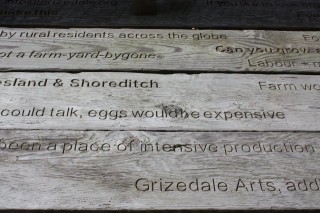 by rural residents across the globe
not a farm-yard-bygone
Can you grow
Labour +
esland & Shoreditch
Farm wo
could talk, eggs would be expensive
been a place of intensive production
Grizedale Arts, add